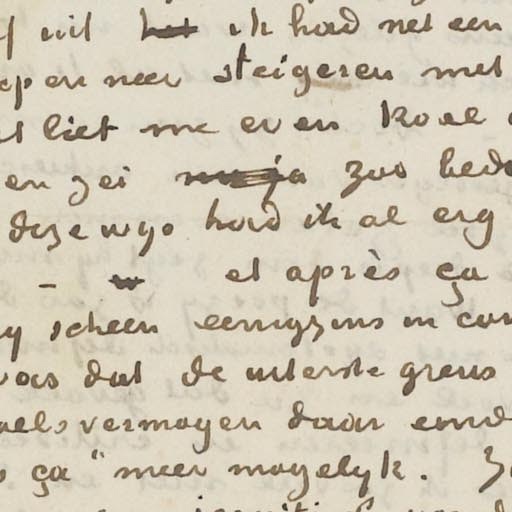 wil ~~het~~ ik had net een
op en neer steigeren met
liet me even koel
en zei ja zoo
deze wys had ik al erg
– et après ça
scheen eenigzins in
was dat de uiterste grens
vermogen daar
ça" meer mogelyk.